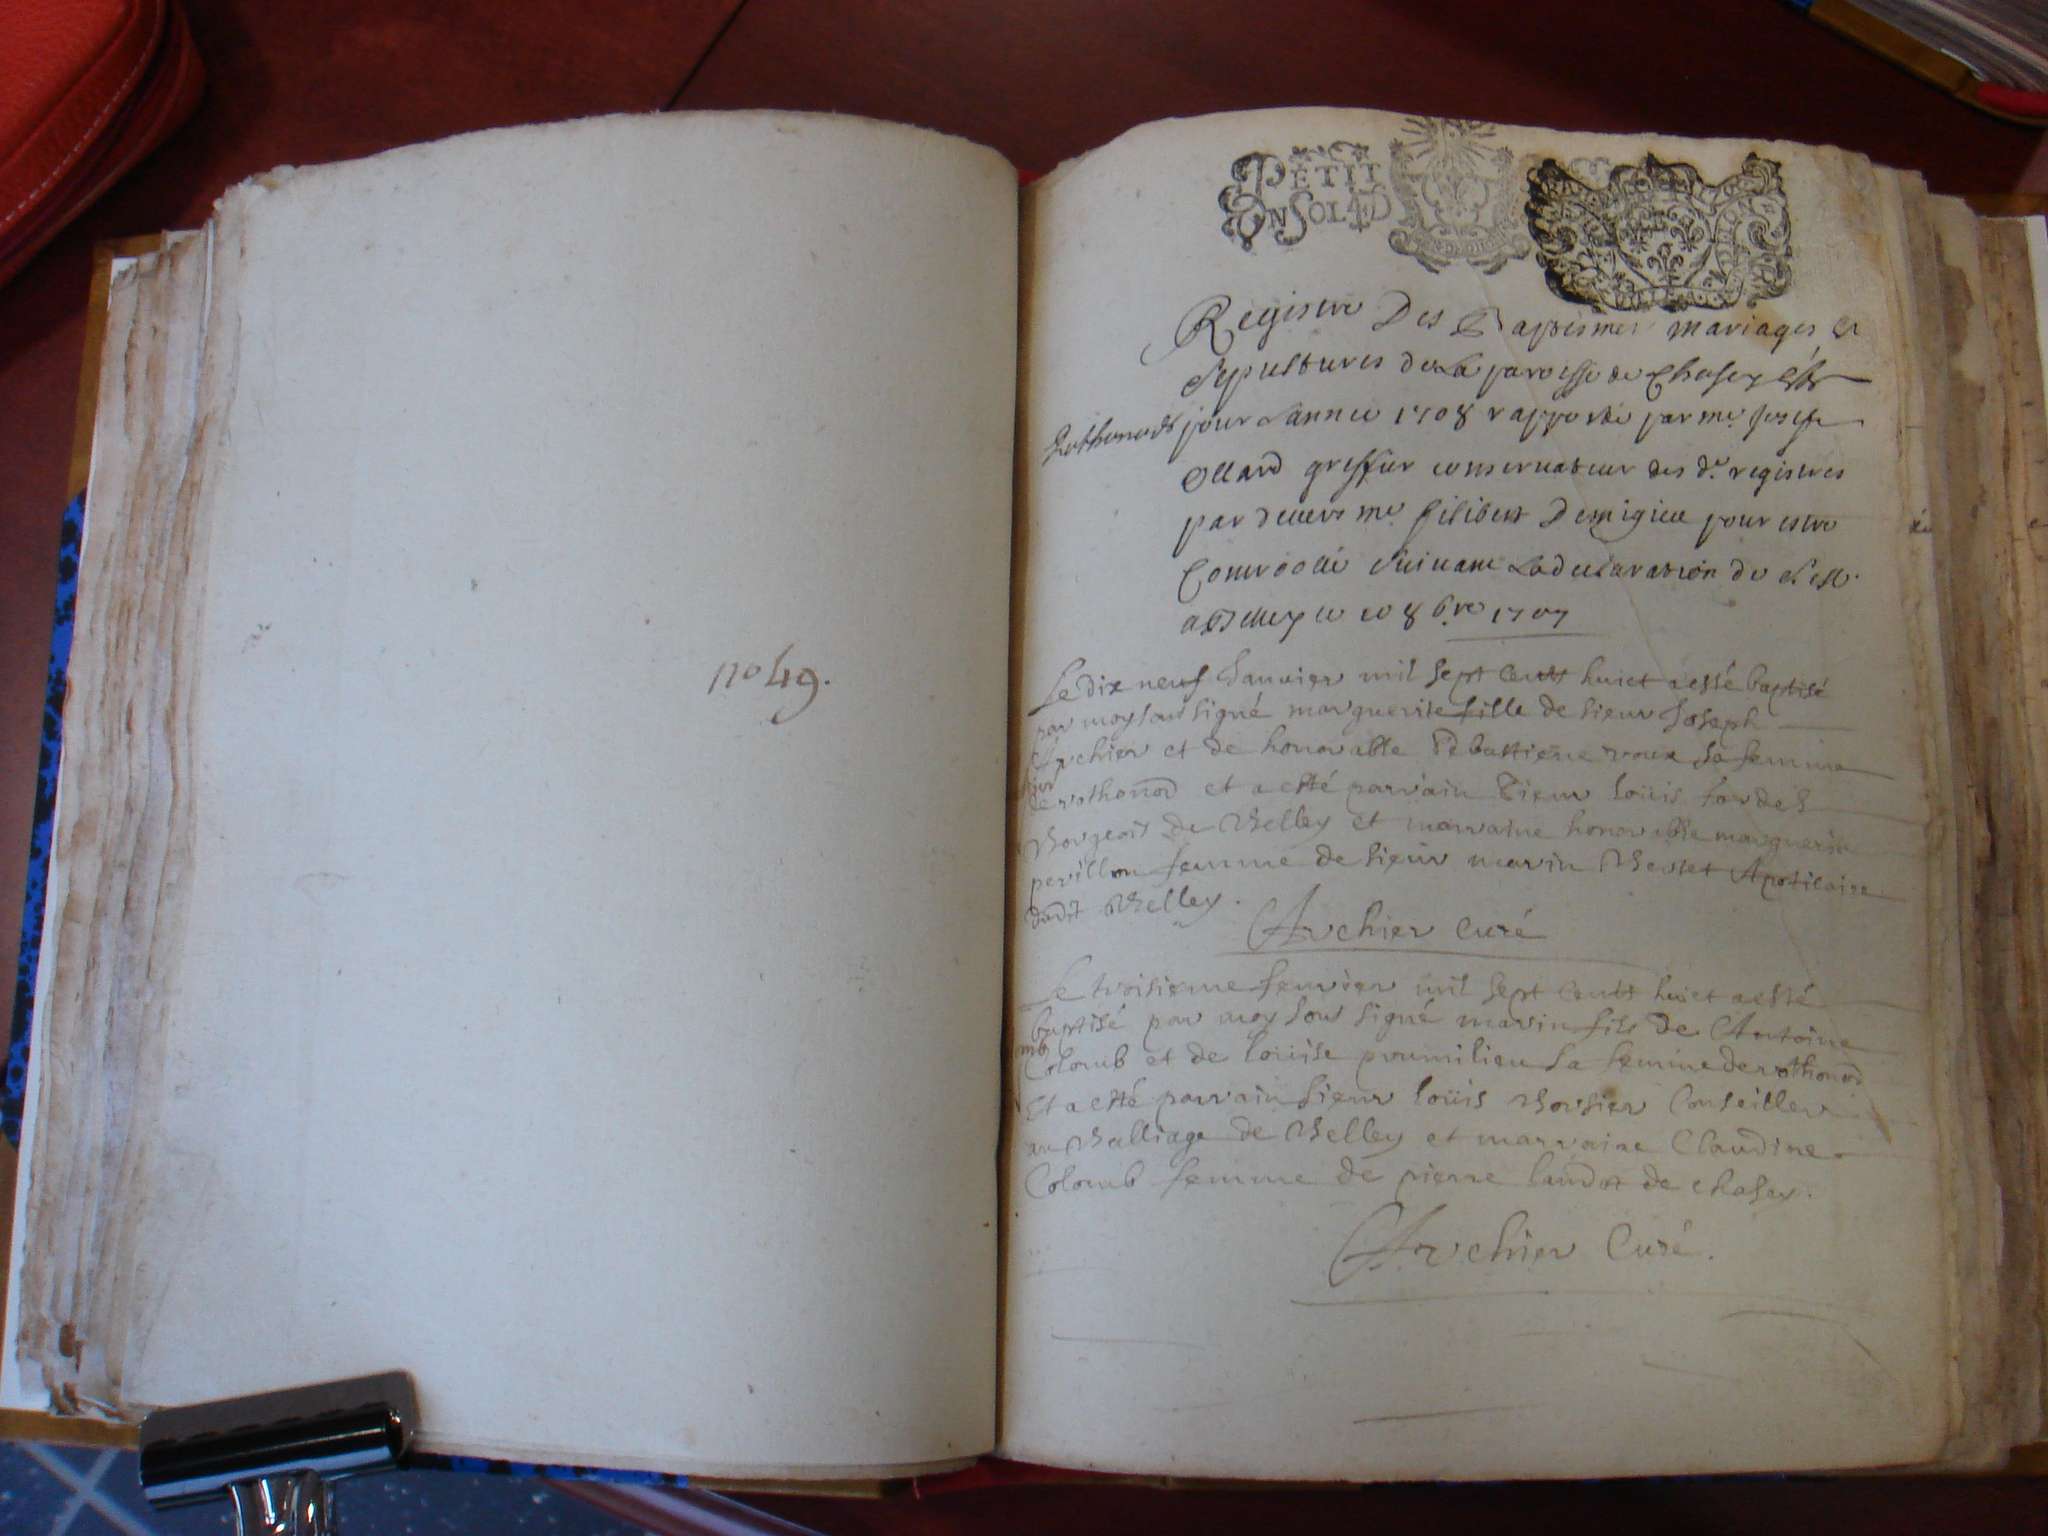 no 49.
PETIT
UN SOL 4 D
Registre Des Baptesmes mariages et
sepultures de La paroisse de Chasey
Rothonod pour Lannee 1708 rapporté par me
Ollard greffier conservateur des dt registres
par devers me filibert Demigieu pour estre
Controollé suivant La declaration du
a Belley ce 8bre 1707
Le dix neuf Janvier mil sept centt huict a esté baptisé
par moy sousigné marguerite fille de sieur Joseph
Archier et de honorable Sebastiene roux sa femme
de rothonod et a esté parrain Sieur Loüis
Borgeois de Belley et marraine honorable marguerite
perillon femme de sieur marin Apoticaire
dudit Belley.
Archier Curé
Le troisieme fevrier mil sept centt huict a esté
baptisé par moy sous signé marin fils de Antoine
Colomb et de Loüise proumilieu sa femme de rothonod
Et a esté parrain Sieur Loüis Borsier Conseiller
au Balliage de Belley et marraine Claudine
Colomb femme de pierre Landot de chasey.
Archier Curé.